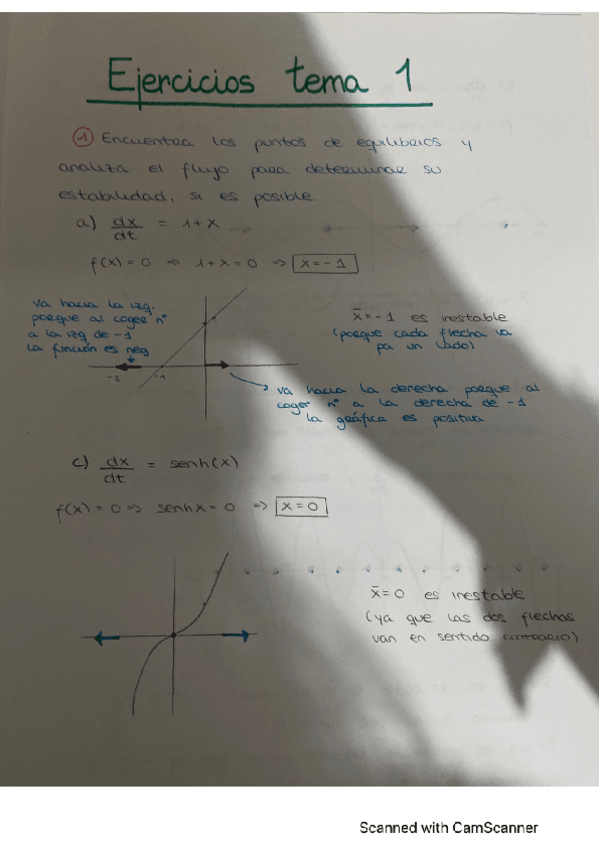 Ejercicios tema 1
① Encuentra los puntos de equilibrios y
analiza el flujo para determinar su
estabilidad, si es posible.
a) dx/dt = 1+x
f(x)=0 ⇒ 1+x=0 ⇒ x=-1
va hacia la izq.
porque al coger nº
a la izq de -1
la función es neg
x̄=-1 es inestable
(porque cada flecha va
pa un lado)
-2 -1
va hacia la derecha porque al
coger nº a la derecha de -1
la gráfica es positiva
c) dx/dt = senh(x)
f(x)=0 ⇒ senhx=0 ⇒ x=0
x̄=0 es inestable
(ya que las dos flechas
van en sentido contrario)
Scanned with CamScanner